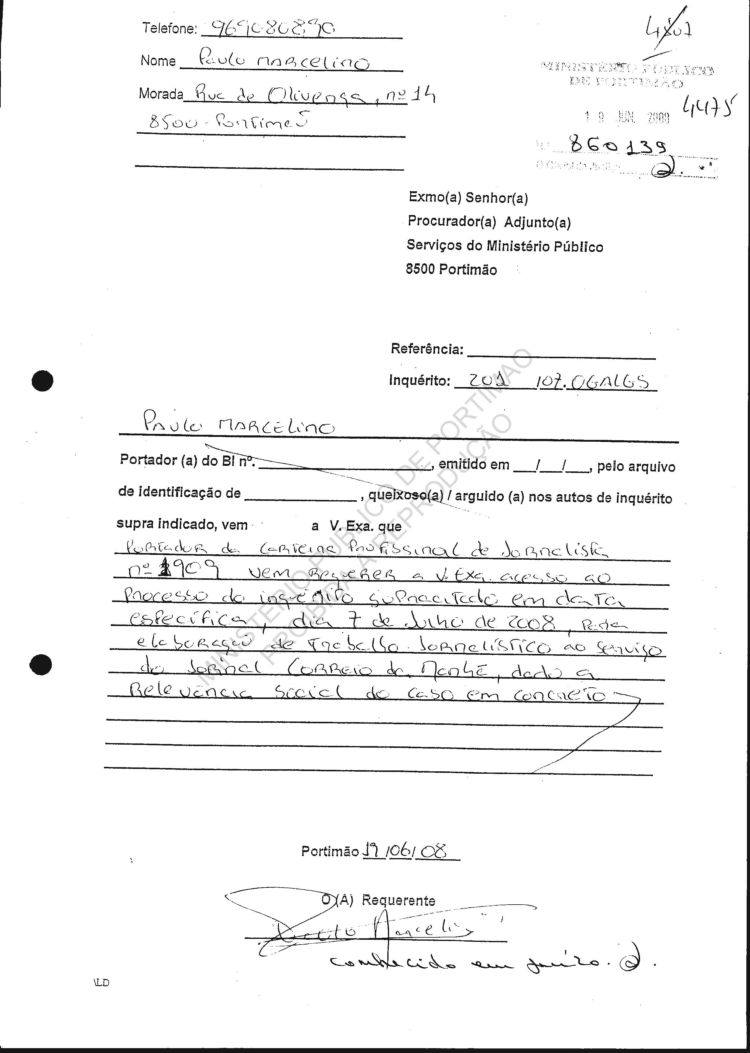 Telefone: 969080890
4475
Nome Paulo Marcelino
MINISTÉRIO PÚBLICO
DE PORTIMÃO
Morada Rua de Olivença, nº 14
8500 - Portimão
19 JUN. 2008
860139
Exmo(a) Senhor(a)
Procurador(a) Adjunto(a)
Serviços do Ministério Público
8500 Portimão
Referência:
Inquérito: 201 107.0GALGS
Paulo Marcelino
Portador (a) do BI nº. , emitido em __/__/__, pelo arquivo
de identificação de , queixoso(a) / arguido (a) nos autos de inquérito
supra indicado, vem a V. Exa. que
Portador da Carteira Profissinal de Jornalista
nº 1909 vem requerer a V. Exa. acesso ao
Processo do inquérito supracitado em data
específica, dia 7 de Julho de 2008, para
elaboração de trabalho jornalístico ao serviço
do Jornal Correio da Manhã, dado a
Relevância Social do caso em concreto
MINISTÉRIO PÚBLICO DE PORTIMÃO
PROIBIDA A REPRODUÇÃO
Portimão 19/06/08
O(A) Requerente
Paulo Marcelino
conhecido em juízo.
\LD